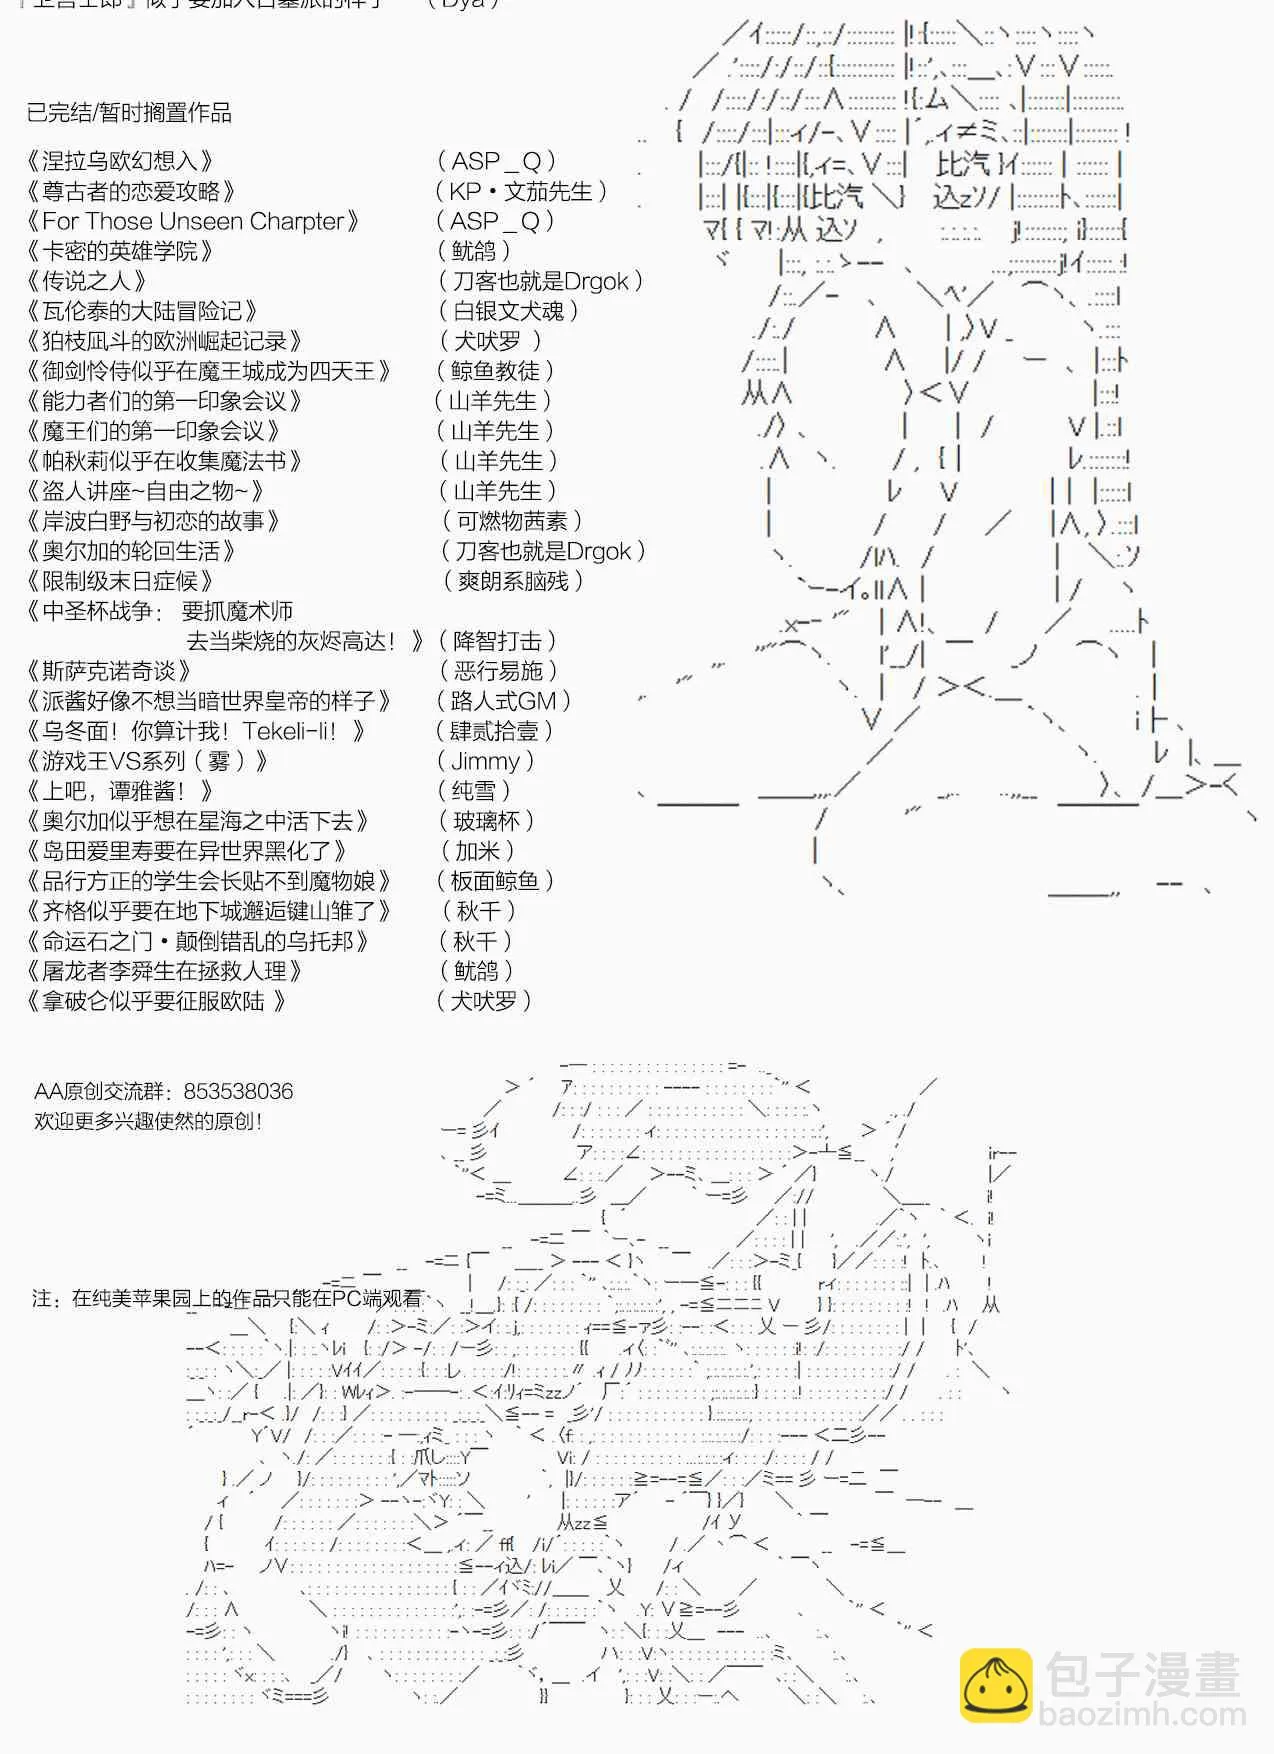 已完结/暂时搁置作品
《涅拉乌欧幻想入》 （ASP_Q）
《尊古者的恋爱攻略》 （KP·文茄先生）
《For Those Unseen Charpter》 （ASP_Q）
《卡密的英雄学院》 （鱿鸽）
《传说之人》 （刀客也就是Drgok）
《瓦伦泰的大陆冒险记》 （白银文犬魂）
《狛枝凪斗的欧洲崛起记录》 （犬吠罗 ）
《御剑怜侍似乎在魔王城成为四天王》 （鲸鱼教徒）
《能力者们的第一印象会议》 （山羊先生）
《魔王们的第一印象会议》 （山羊先生）
《帕秋莉似乎在收集魔法书》 （山羊先生）
《盗人讲座~自由之物~》 （山羊先生）
《岸波白野与初恋的故事》 （可燃物茜素）
《奥尔加的轮回生活》 （刀客也就是Drgok）
《限制级末日症候》 （爽朗系脑残）
《中圣杯战争： 要抓魔术师
去当柴烧的灰烬高达！》（降智打击）
《斯萨克诺奇谈》 （恶行易施）
《派酱好像不想当暗世界皇帝的样子》 （路人式GM）
《乌冬面！你算计我！Tekeli-li！》 （肆贰拾壹）
《游戏王VS系列（雾）》 （Jimmy）
《上吧，谭雅酱！》 （纯雪）
《奥尔加似乎想在星海之中活下去》 （玻璃杯）
《岛田爱里寿要在异世界黑化了》 （加米）
《品行方正的学生会长贴不到魔物娘》 （板面鲸鱼）
《齐格似乎要在地下城邂逅键山雏了》 （秋千）
《命运石之门·颠倒错乱的乌托邦》 （秋千）
《屠龙者李舜生在拯救人理》 （鱿鸽）
《拿破仑似乎要征服欧陆 》 （犬吠罗）
AA原创交流群：853538036
欢迎更多兴趣使然的原创！
注：在纯美苹果园上的作品只能在PC端观看
包子漫畫
baozimh.com